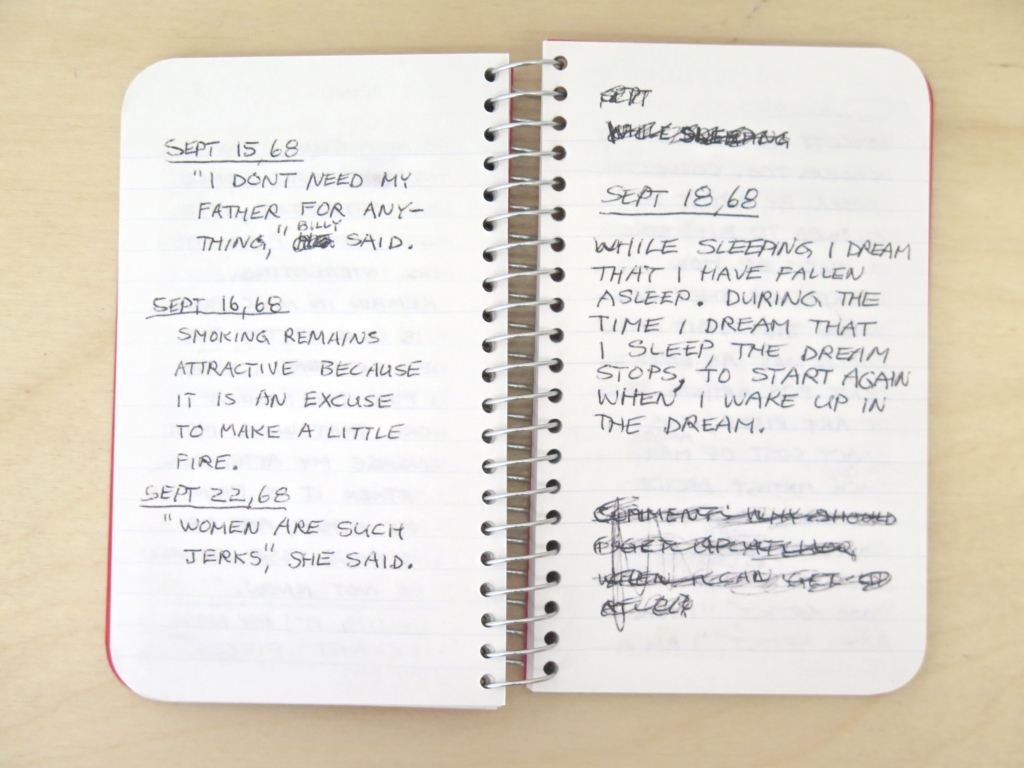 SEPT 15, 68
"I DONT NEED MY
FATHER FOR ANY-
THING," BILLY SAID.
SEPT 16, 68
SMOKING REMAINS
ATTRACTIVE BECAUSE
IT IS AN EXCUSE
TO MAKE A LITTLE
FIRE.
SEPT 22, 68
"WOMEN ARE SUCH
JERKS," SHE SAID.
SEPT
WHILE SLEEPING
SEPT 18, 68
WHILE SLEEPING I DREAM
THAT I HAVE FALLEN
ASLEEP. DURING THE
TIME I DREAM THAT
I SLEEP THE DREAM
STOPS, TO START AGAIN
WHEN I WAKE UP IN
THE DREAM.
COMMENT: WHY SHOULD
WHEN I CAN GET